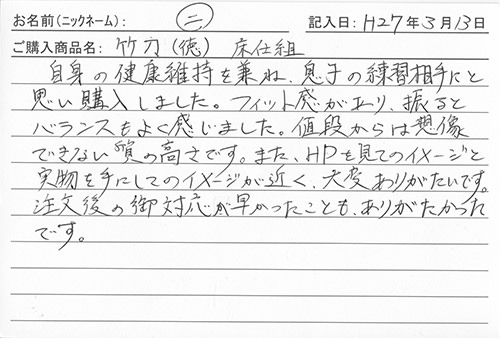 お名前(ニックネーム): 二 記入日: H27年3月13日
ご購入商品名: 竹刀(徳) 床仕組
自身の健康維持を兼ね、息子の練習相手にと
思い購入しました。フィット感があり、振ると
バランスもよく感じました。値段からは想像
できない質の高さです。また、HPを見てのイメージと
実物を手にしてのイメージが近く、大変ありがたいです。
注文後の御対応が早かったことも、ありがたかった
です。